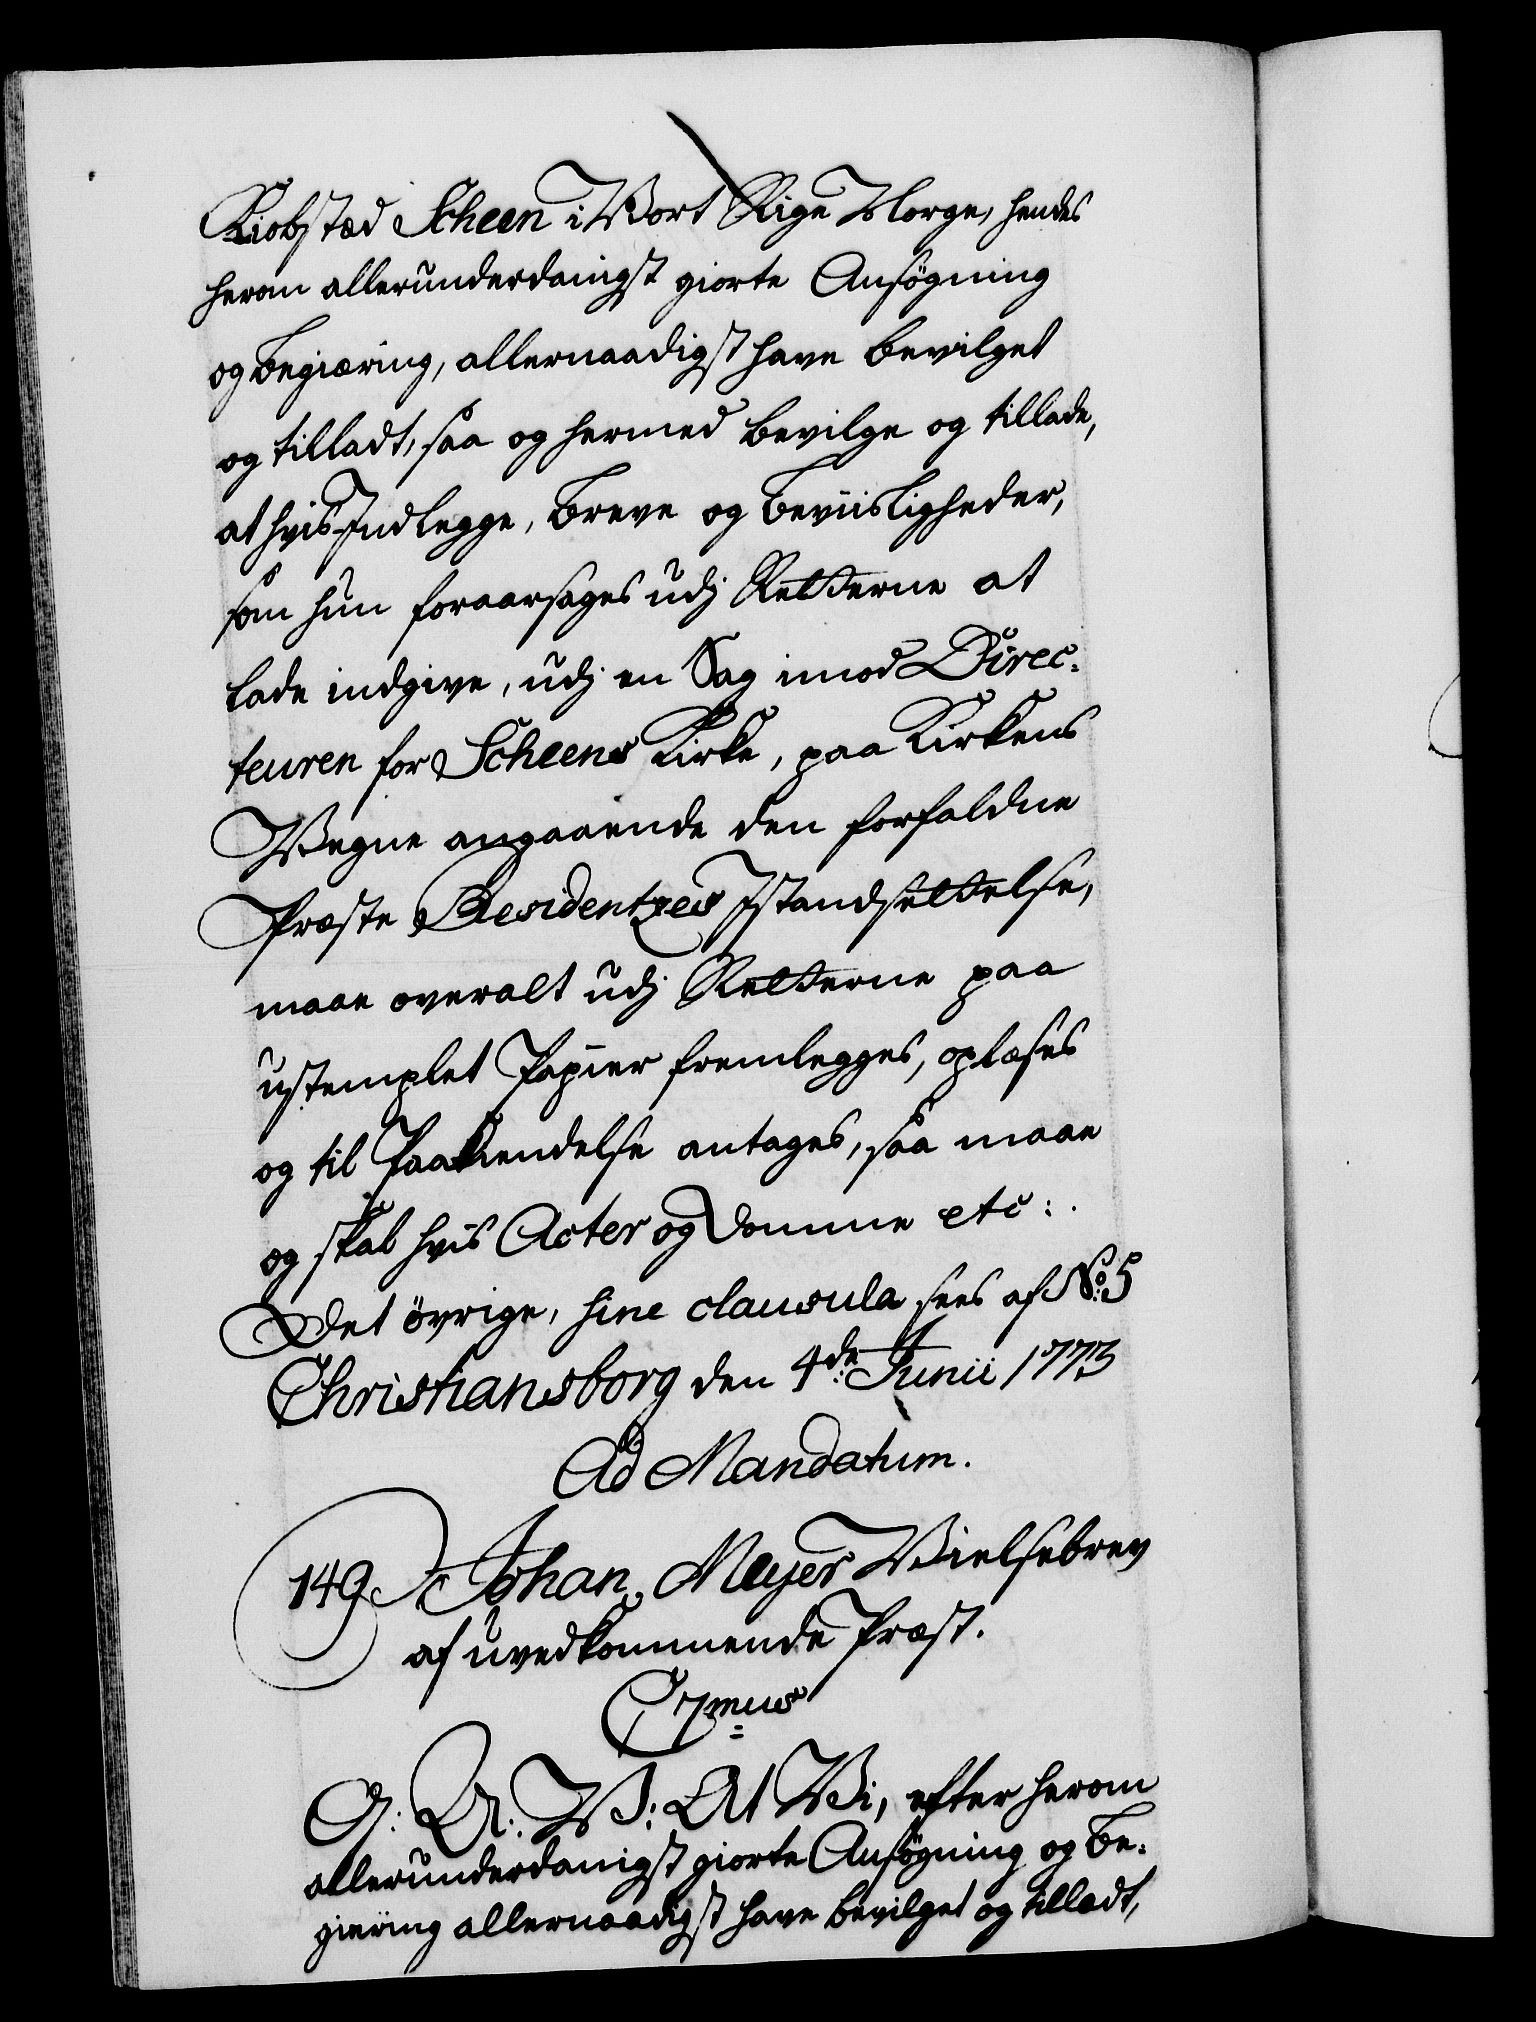 Kiøbstæd Scheen i Vort Rige Norge, hendes
herom allerunderdanigst giorte Ansøgning
og Begiæring, allernaadigst have bevilget
og tilladt, saa og hermed bevilge og tillade,
at hvis Indlegge, Breve og Beviisligheder,
som hun foraarsages udj Retterne at
lade indgive, udj en Sag imod Direc-
teuren for Scheens Kirke, paa Kirkens
Vegne angaaende den forfaldne
Præste Residentzes Istandsettelse,
maae overalt udj Retterne paa
ustemplet Papiir fremlegges, oplæses
og til Paakiendelse antages, saa maae
og skal hvis Acter og Domme etc:.
Det øvrige, sine clausula sees af No. 5
Christiansborg den 4de Junii 1773
Ad Mandatum.
149 Johan Meyer Vielsebrev
af uvedkommende Præst.
C 7mus
G: A: V: At Vi, efter herom
allerunderdanigst giorte Ansøgning og Be-
giering allernaadigst have bevilget og tilladt,